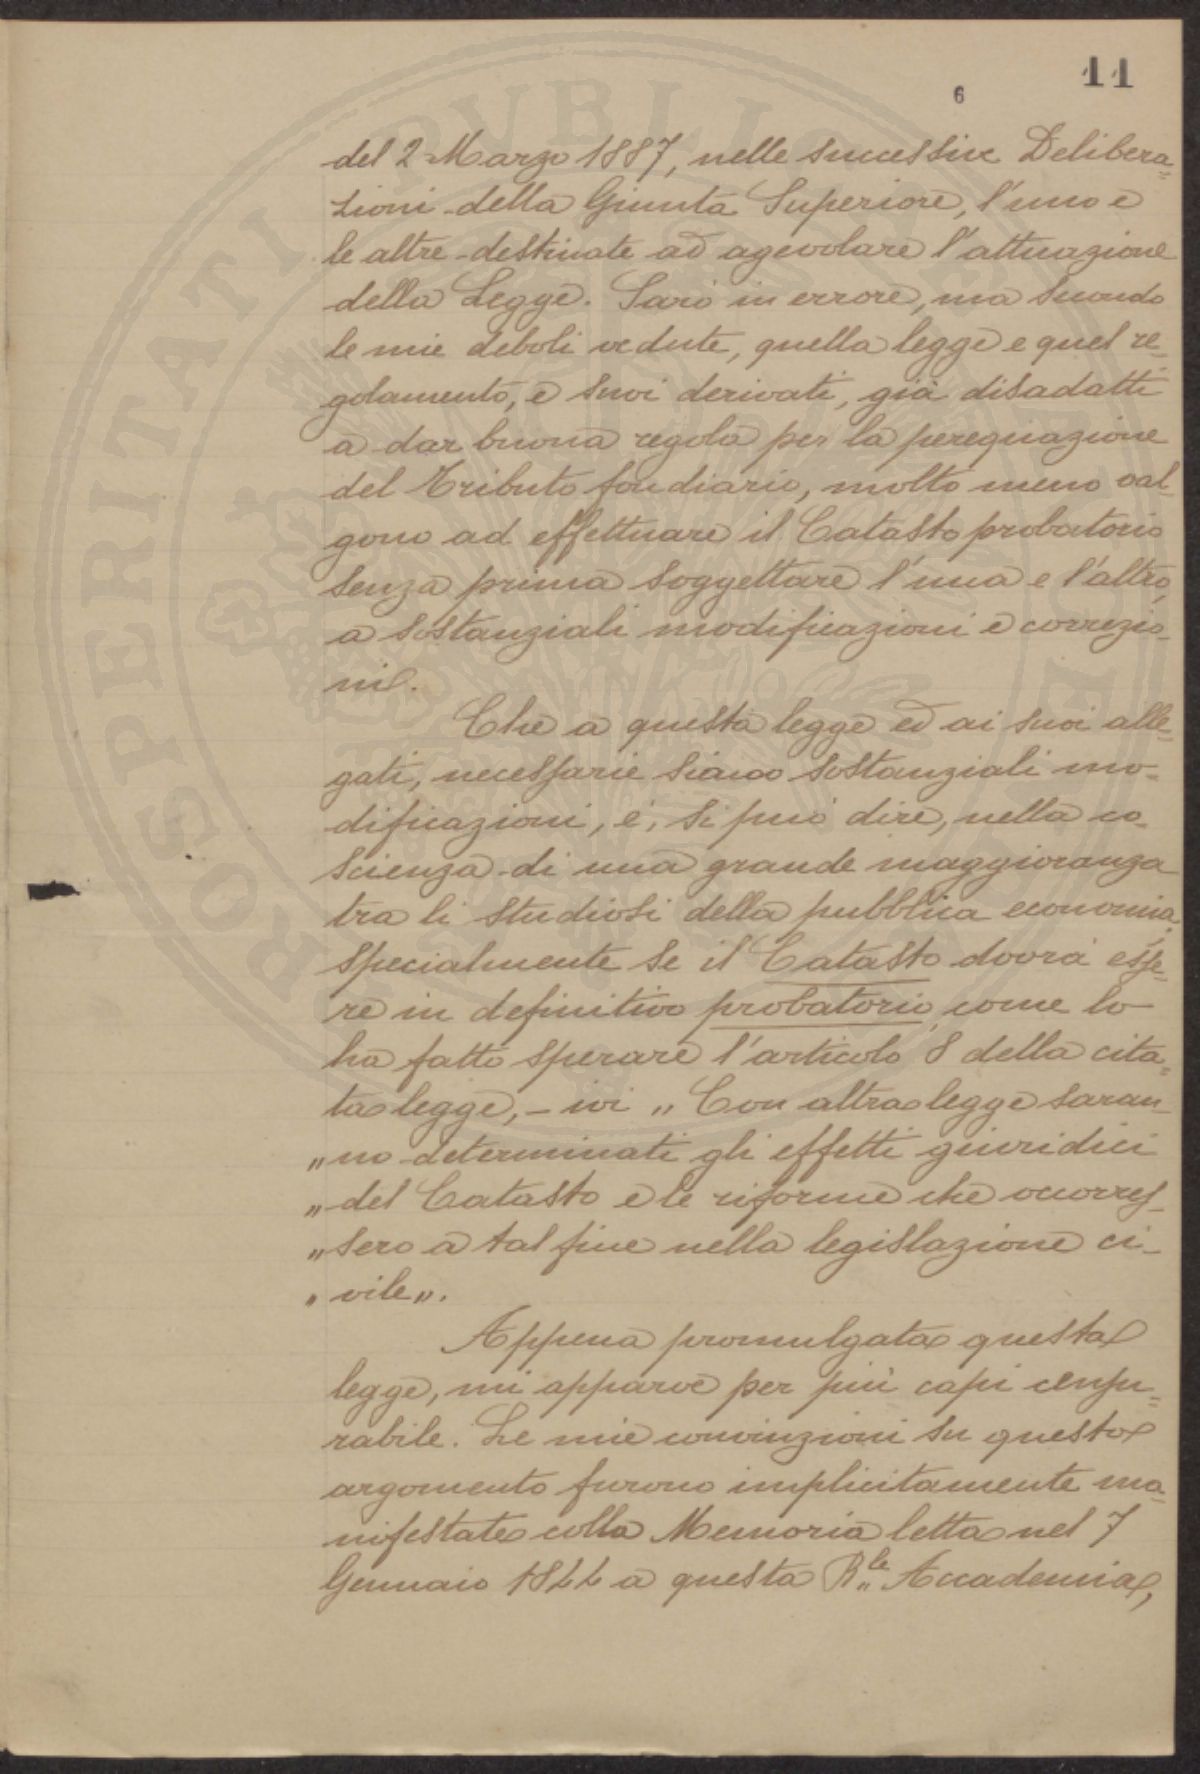 11
6
del 2 Marzo 1887, nelle successive Delibera=
zioni della Giunta Superiore, l'uno e
le altre destinate ad agevolare l'attuazione
della Legge. Sarò in errore, ma secondo
le mie deboli vedute, quella legge e quel re=
golamento, e suoi derivati, già disadatti
a dar buona regola per la perequazione
del Tributo fondiario, molto meno val=
gono ad effettuare il Catasto probatorio
senza prima soggettare l'una e l'altro,
a sostanziali modificazioni e correzio=
ni.
Che a questa legge ed ai suoi alle=
gati, necessarie siano sostanziali mo=
dificazioni, è, si può dire, nella co=
scienza di una grande maggioranza
tra li studiosi della pubblica economia,
specialmente se il Catasto dovrà esse=
re in definitivo probatorio, come lo
ha fatto sperare l'articolo 8 della cita=
ta legge, - ivi „ Con altra legge saran=
„ no determinati gli effetti giuridici
„ del Catasto e le riforme che occorres=
„ sero a tal fine nella legislazione ci=
„ vile „.
Appena promulgata questa
legge, mi apparve per più capi censu=
rabile. Le mie convinzioni su questo
argomento furono implicitamente ma=
nifestate colla Memoria letta nel 7
Gennaio a questa R.le Accademia,
PROSPERITATI PUBLICAE